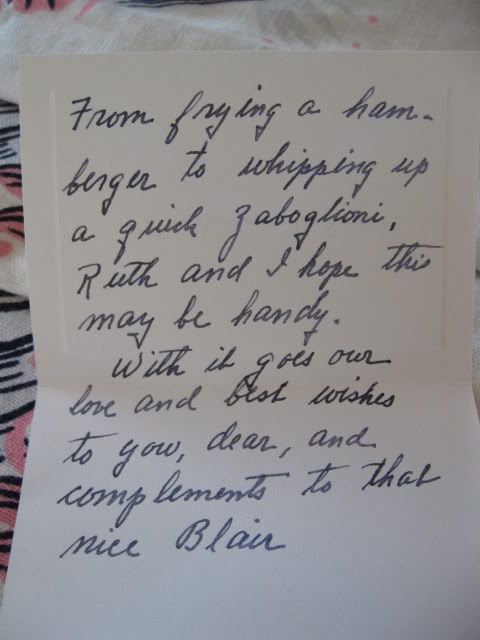 From frying a ham-
berger to whipping up
a quick Zaboglioni,
Ruth and I hope this
may be handy.
With it goes our
love and best wishes
to you, dear, and
complements to that
nice Blair